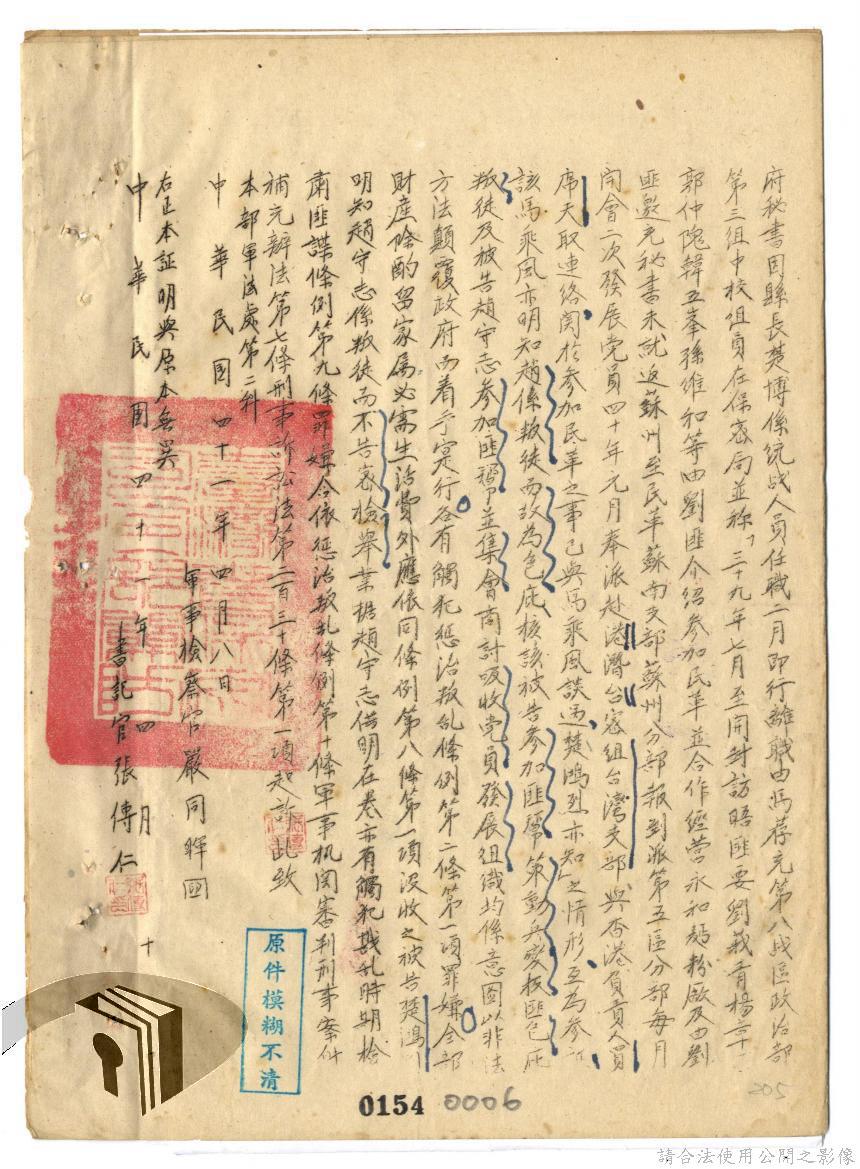 府秘書因縣長楚博係統战人員任職二月即行離職由馮荐充第八战區政治部
第三組中校組員在保密局並称「三十九年七月至開封訪晤匪要劉莪青楊
郭仲隗韓五峯孫維和等由劉匪介紹參加民革並合作經营永和麵粉厰及由劉
匪邀充秘書未就返蘇州至民革蘇南支部蘇州分部報到派第五區分部每月
開會二次發展党員四十年元月奉派赴港潛台密組台灣支部與香港負責人員
席天取連絡関於參加民革之事已與馬乘風談过楚鴻烈亦知」之情形互為參証
該馬乘風亦明知趙係叛徒而故為包庇核該被告參加匪幫策動兵变核匪包庇
叛徒及被告趙守志參加匪幫並集會商討吸收党員發展組織均係意圖以非法
方法顛覆政府而着手实行各有觸犯惩治叛乱條例第二條第一項罪嫌全部
財產除酌留家属必需生活費外應依同條例第八條第一項沒收之被告楚鴻
明知趙守志係叛徒而不告密檢舉業據趙守志供明在卷亦有觸犯戡乱時期檢
肅匪諜條例第九條罪嫌合依惩治叛乱條例第十條軍事机関審判刑事案件
補充辦法第七條刑事訴訟法第二百三十條第一項起訴此致
本部軍法處第二科
中華民國四十一年四月八日
軍事檢察官嚴同暉
右正本証明與原本無異
中華民國四十一年四月十
書記官張傳仁
原件模糊不清
0154 0006
205
請合法使用公開之影像